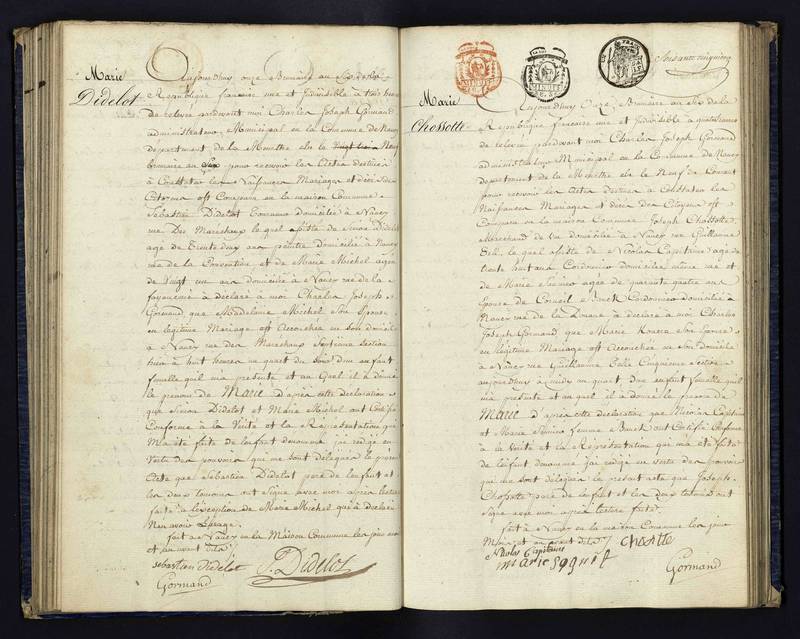 Marie
Didelot
Aujourd'huy onze Brumaire an Six de la
République française une et Indivisible à trois heures
de relevée pardevant moi Charles Joseph Gormand
administrateur Municipal en la Commune de Nancy
departement de la Meurthe elu le Neuf
brumaire an pour recevoir les Actes destinés
à Constater les Naissances Mariages et décès des
Citoyens est Comparu en la maison Commune
Sebastien Didelot domicilié à Nancy
rue des Marechaux le quel assisté de Didelot
age de trente deux ans peintre domicilié à Nancy
rue de la Convention et de Marie Michel agée
de Vingt un ans domiciliée à Nancy rue de la
fayencerie à declaré a moi Charles Joseph
Gormand, que Madelaine Michel Son Epouse
en légitime Mariage est Accouchée en son domicile
à Nancy rue des Marechaux Septieme Section
hier à huit heures un quart du soir d'un enfant
femelle qu'il m'a présenté et au Quel il a donné
le prenom de Marie d'après cette déclaration
que Didelot et Marie Michel ont Certifié
Conforme à la Verité et la Représentation qui
M'a été faite de l'enfant denommé j'ai redigé en
Vertu des pouvoirs qui me sont délégués le présent
Acte que Sebastien Didelot pere de l'enfant et
les deux temoins ont Signé avec moi après lecture
faite à l'exception de Marie Michel qui a declaré
N'en avoir L'usage.
fait à Nancy en la Maison Commune les jour mois
et an avant dits
sebastien didelot
S. Didelot
Gormand
Soixante cinquieme
Marie
Chossotte
Aujourd'huy Onze Brumaire an Six de la
République française une et Indivisible à quatre heures
de relevée pardevant moi Charles Joseph Gormand
administrateur Municipal en la Commune de Nancy
departement de la Meurthe elu le Neuf du Courant
pour recevoir les Actes destinés à Constater les
Naissances Mariages et décès des Citoyens est
Comparu en la maison Commune Joseph Chossotte
Marchand de vin domicilié à Nancy rue Guillaume
Tell, le quel assisté de Nicolas Capitaine agé de
trente huit ans Cordonnier domicilié même rue et
de Marie agée de quarante quatre ans
Epouse de Cordonnier domiciliée à
Nancy rue de la à déclaré a moi Charles
Joseph Gormand, que Marie Son Epouse
en légitime Mariage est Accouchée en Son domicile
à Nancy rue Guillaume Cinquieme Section
aujourd'huy à midy un quart d'un enfant femelle qu'il
m'a présenté et auquel il a donné le prenom de
Marie d'après cette déclaration que Nicolas Capitaine
et Marie femme ont Certifié Conforme
à la Verité et la Représentation qui m'a été faite
de l'enfant denommé j'ai redigé en vertu des pouvoirs
qui me sont délégués le présent acte que Joseph
Chossotte pere de l'enfant et les deux temoins ont
Signé avec moi après lecture faite.
fait à Nancy en la maison Commune les jour
Mois et an avant dits
Nicolas Capitaine
marie
Gormand